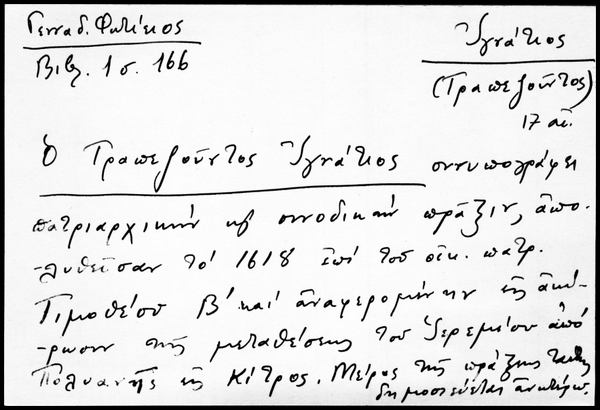 Γενναδ. Φωτίειος
Βιβλ. 1 σ. 166
Ἰγνάτιος
(Τραπεζοῦντος)
17 αἰ.
Ὁ Τραπεζοῦντος Ἰγνάτιος συνυπογράφει
πατριαρχικὴν κ̣ συνοδικὴν πρᾶξιν, ἀπο-
-λυθεῖσαν τὸ 1618 ἐπὶ τοῦ οἰκ. πατρ.
Τιμοθέου Β' καὶ ἀναφερομένην εἰς ἀκύ-
-ρωσιν τῆς μεταθέσεως τοῦ Ἱερεμίου ἀπὸ
Πολυανῆς εἰς Κίτρος. Μέρος τῆς πράξεως ταύτης
δημοσιεύεται ἀνωτέρω.